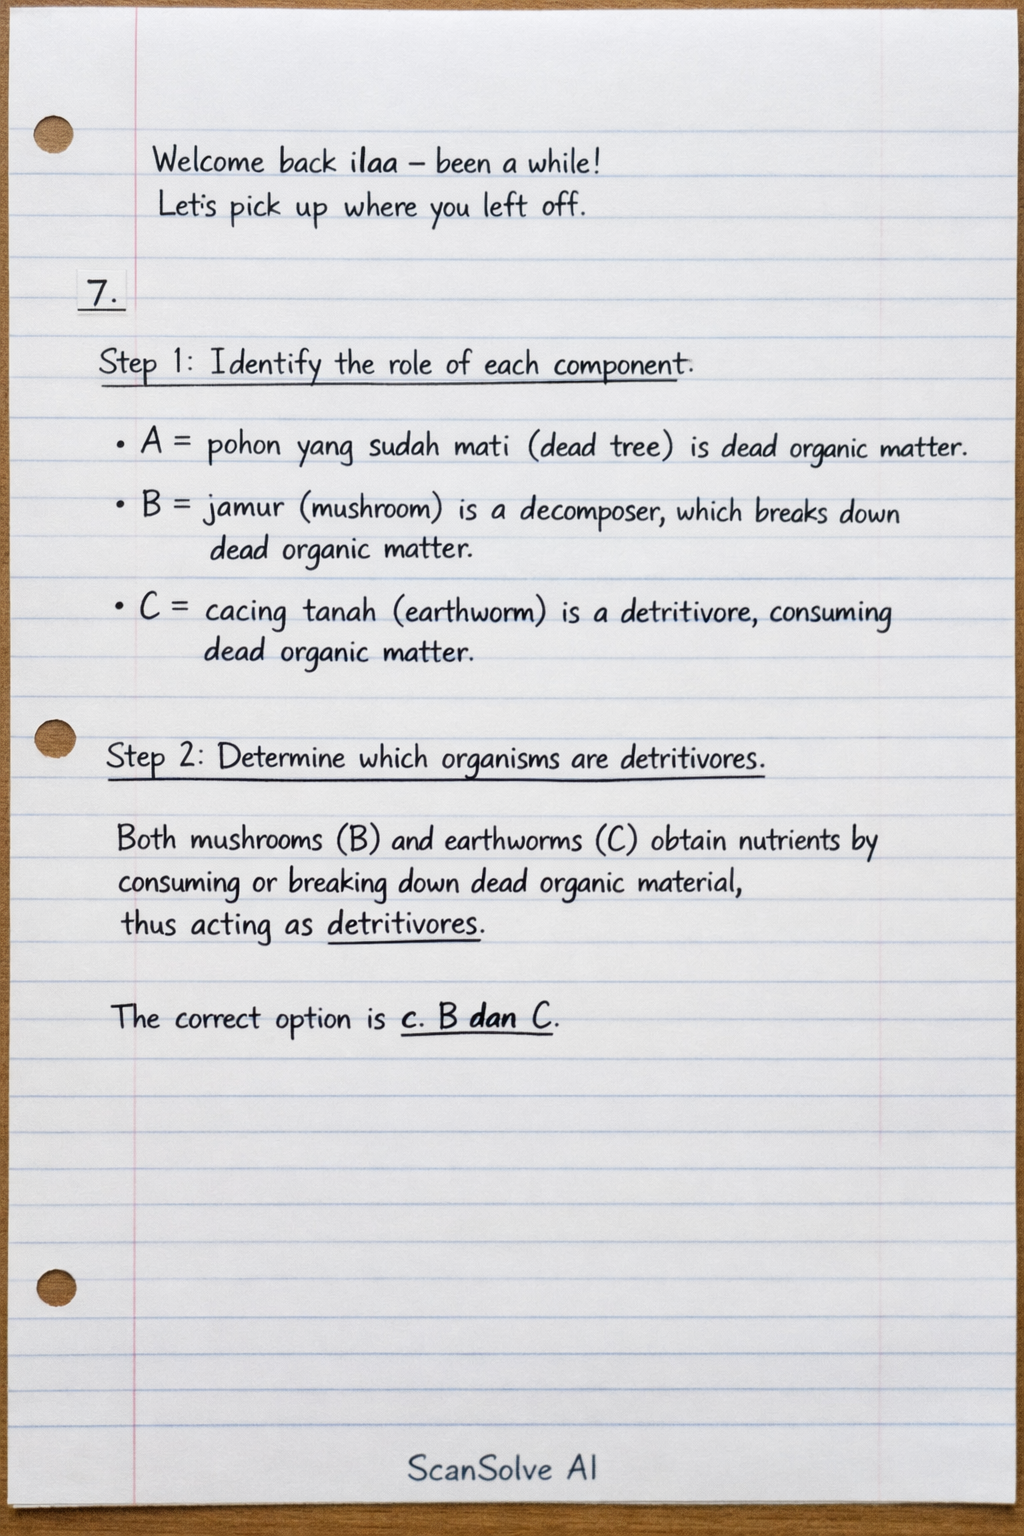 Welcome back ilaa – been a while!
Let's pick up where you left off.
7.
Step 1: Identify the role of each component.
• A = pohon yang sudah mati (dead tree) is dead organic matter.
• B = jamur (mushroom) is a decomposer, which breaks down
dead organic matter.
• C = cacing tanah (earthworm) is a detritivore, consuming
dead organic matter.
Step 2: Determine which organisms are detritivores.
Both mushrooms (B) and earthworms (C) obtain nutrients by
consuming or breaking down dead organic material,
thus acting as detritivores.
The correct option is c. B dan C.
ScanSolve AI